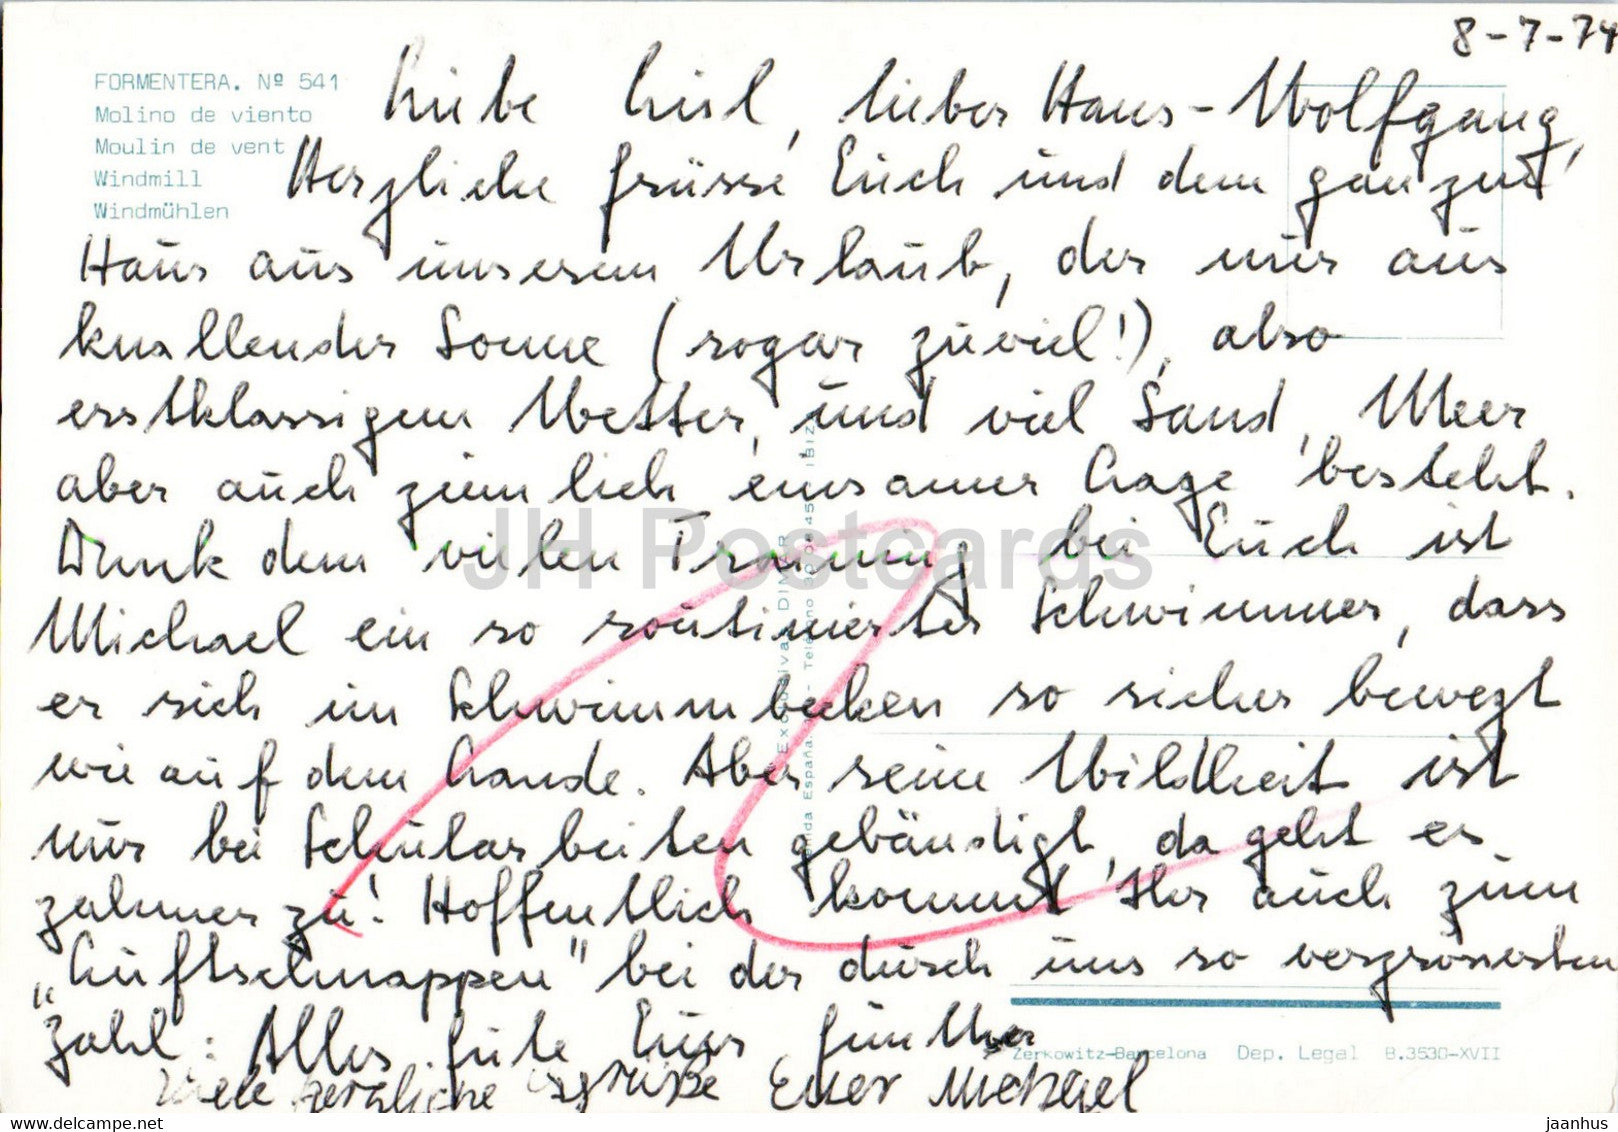 8-7-74
FORMENTERA. Nº 541
Molino de viento
Moulin de vent
Windmill
Windmühlen
Liebe Lisl, lieber Hans-Wolfgang,
Herzliche Grüsse Euch und dem ganzen
Haus aus unserem Urlaub, der nur aus
knallender Sonne (sogar zuviel!), also
erstklassigem Wetter, und viel Sand, Meer
aber auch ziemlich einsamer Lage besteht.
Dank dem vielen Training bei Euch ist
Michael ein so routinierter Schwimmer, dass
er sich im Schwimmbecken so sicher bewegt
wie auf dem Lande. Aber seine Wildheit ist
nur bei Schularbeiten gebändigt, da geht es
zahmer zu! Hoffentlich kommt Ihr auch zum
„Luftschnappen" bei der durch uns so vergrösserten
Zahl: Alles Gute Euer Günther
Viele herzliche Grüße Euer
Exclusivas DIMAR
Telefono
IBIZA
Zerkowitz-Barcelona Dep. Legal B.3530-XVII
JH Postcards
www.delcampe.net
jaanhus